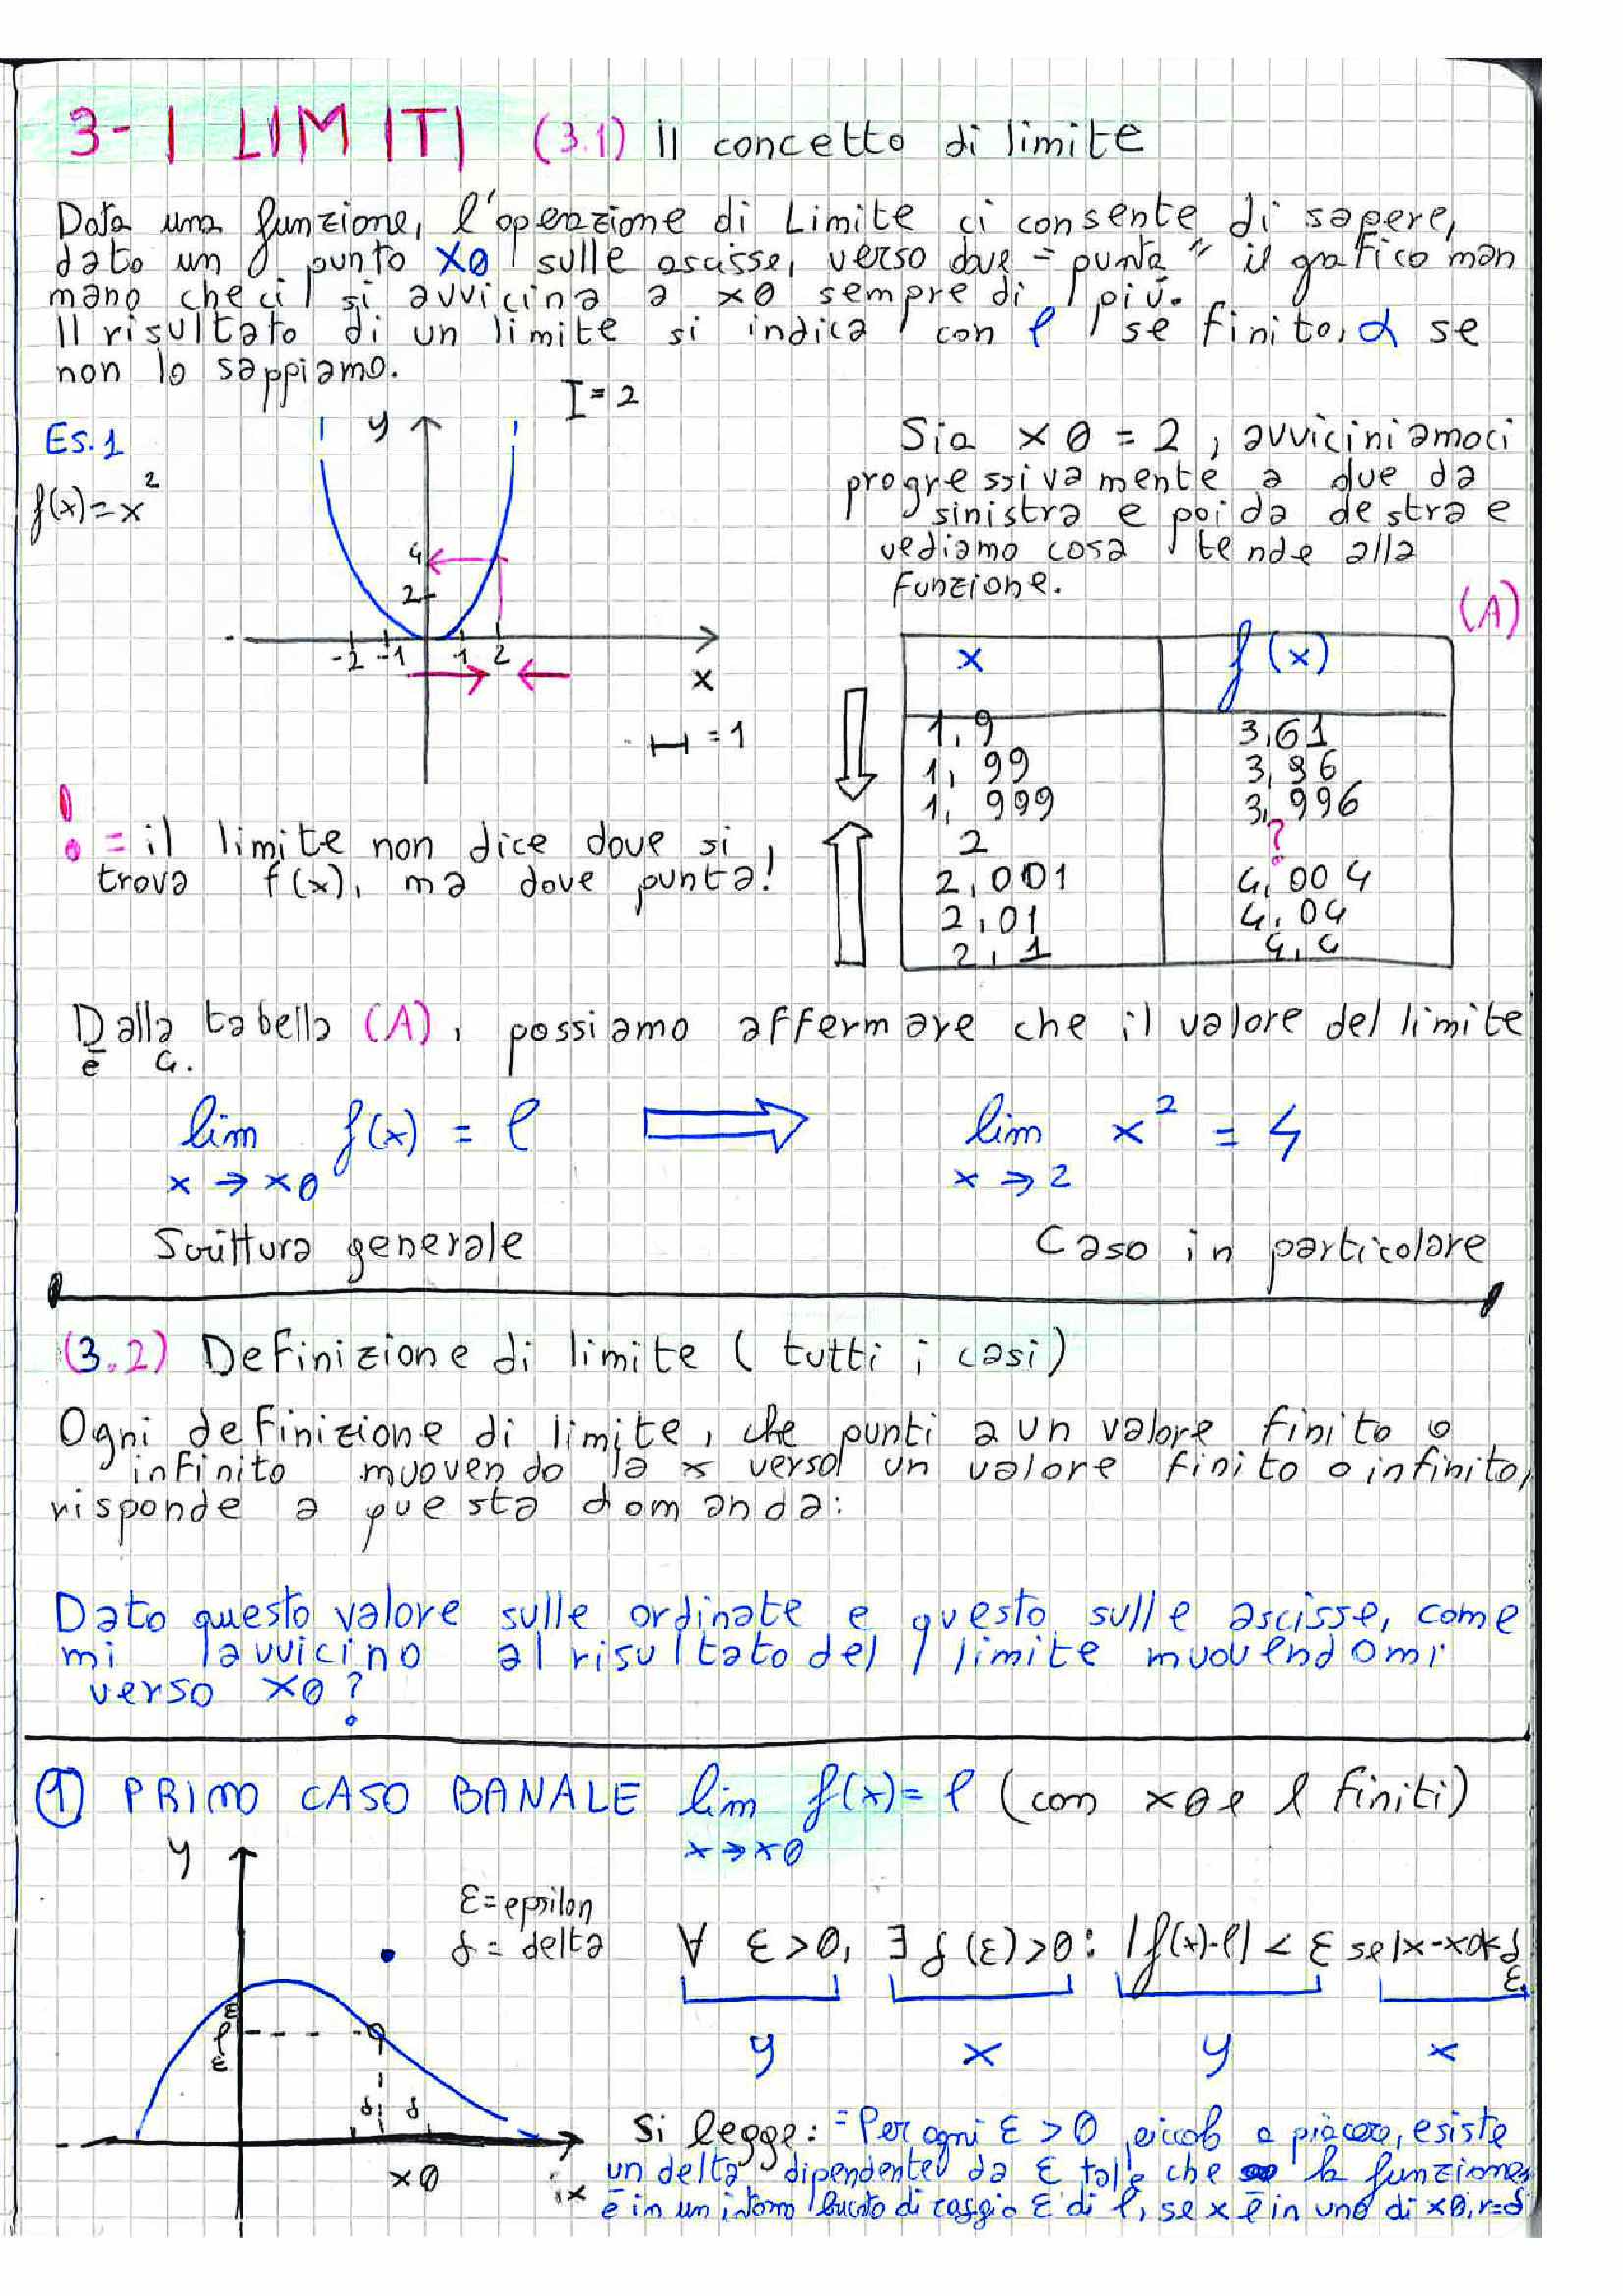 3- I LIMITI (3.1) Il concetto di limite
Data una funzione, l'operazione di Limite ci consente di sapere,
dato un punto x0 sulle ascisse, verso dove "punta" il grafico man
mano che ci si avvicina a x0 sempre di più.
Il risultato di un limite si indica con l se finito, α se
non lo sappiamo.
I=2
Es.1
f(x)=x²
y
4
2
-2 -1 1 2
x
=1
Sia x0 = 2, avviciniamoci
progressivamente a due da
sinistra e poi da destra e
vediamo cosa tende alla
funzione.
(A)
x f(x)
1,9 3,61
1,99 3,96
1,999 3,996
2 ?
2,001 4,004
2,01 4,04
2,1 4,4
! = il limite non dice dove si
trova f(x), ma dove punta!
Dalla tabella (A), possiamo affermare che il valore del limite
è 4.
lim f(x) = l ⇒ lim x² = 4
x → x0 x → 2
Scrittura generale Caso in particolare
(3.2) Definizione di limite (tutti i casi)
Ogni definizione di limite, che punti a un valore finito o
infinito muovendo la x verso un valore finito o infinito,
risponde a questa domanda:
Dato questo valore sulle ordinate e questo sulle ascisse, come
mi avvicino al risultato del limite muovendomi
verso x0?
① PRIMO CASO BANALE lim f(x)=l (con x0 e l finiti)
x→x0
y
ε=epsilon
δ= delta
∀ ε>0, ∃ δ(ε)>0: |f(x)-l| < ε se |x-x0|<δ
ε
y x y x
ε
l
ε
δ δ
x0
x
Si legge: "Per ogni ε > 0 piccolo a piacere, esiste
un delta dipendente da ε tale che la funzione
è in un intorno bucato di raggio ε di l, se x è in uno di x0, r=δ